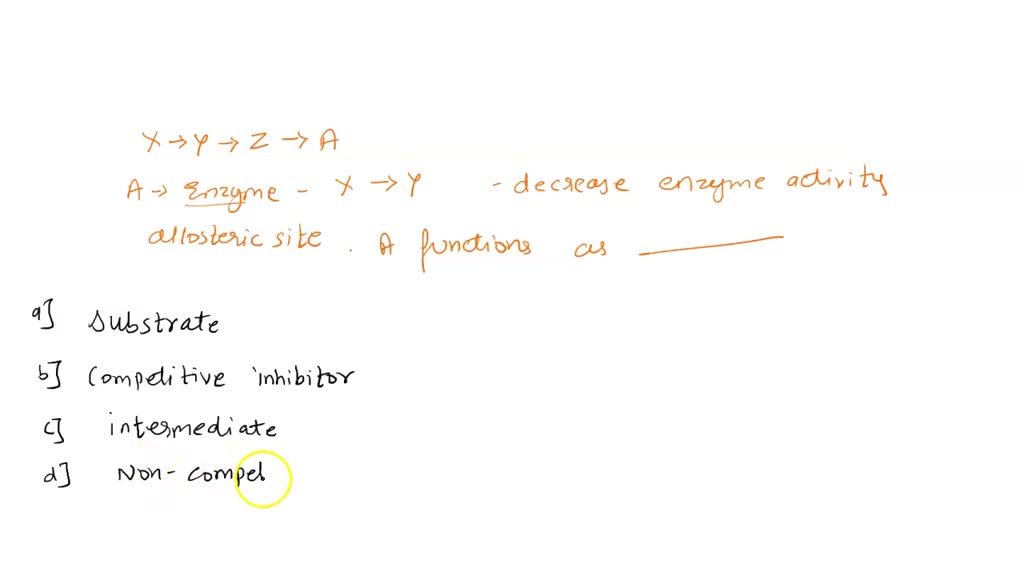 X → Y → Z → A
A → Enzyme - X → Y - decrease enzyme activity
allosteric site. A functions as
a] Substrate
b] Competitive inhibitor
c] intermediate
d] Non-compet